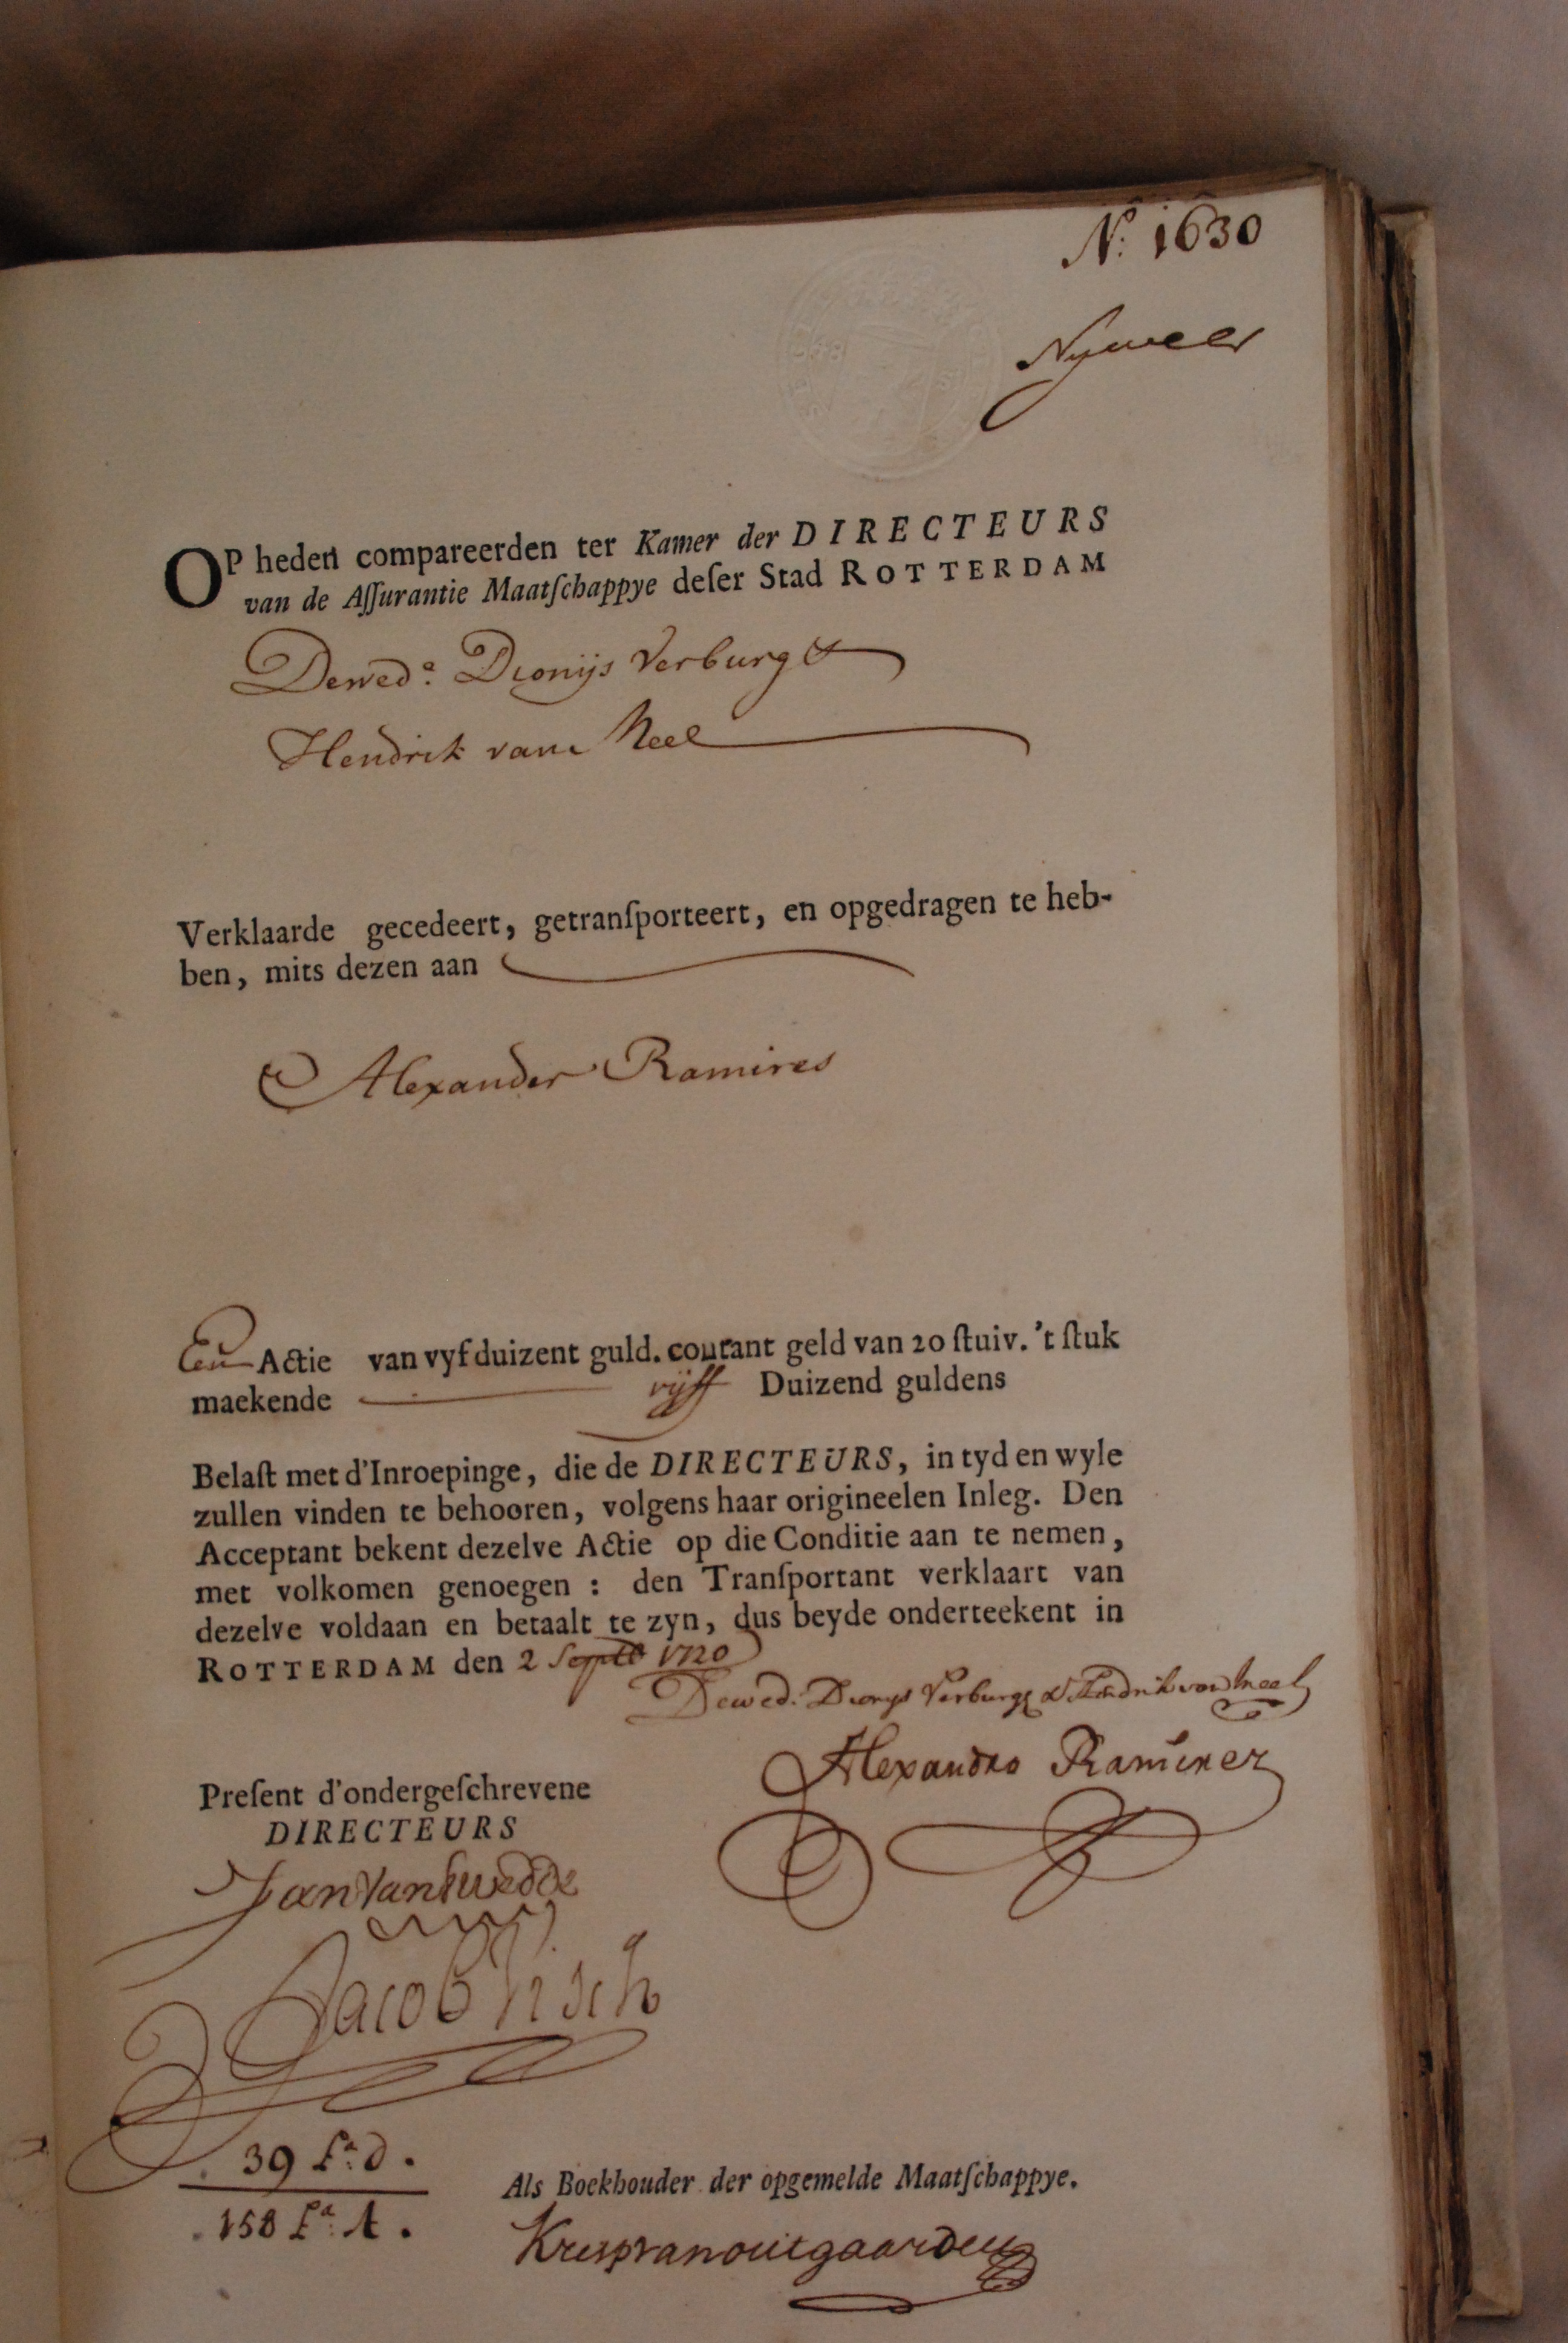 N.º 1630
OP heden compareerden ter Kamer der DIRECTEURS
van de Aſſurantie Maatſchappye deſer Stad ROTTERDAM
Dewed.e Dionijs Verburg &
Hendrik van Meel
Verklaarde gecedeert, getranſporteert, en opgedragen te heb-
ben, mits dezen aan
Alexander Ramires
Een Actie van vyf duizent guld. courant geld van 20 ſtuiv. 't ſtuk
maekende vijff Duizend guldens
Belaſt met d'Inroepinge, die de DIRECTEURS, in tyd en wyle
zullen vinden te behooren, volgens haar origineelen Inleg. Den
Acceptant bekent dezelve Actie op die Conditie aan te nemen,
met volkomen genoegen : den Tranſportant verklaart van
dezelve voldaan en betaalt te zyn, dus beyde onderteekent in
ROTTERDAM den 2 Septb 1720
Dewed: Dionys Verburg & Hendrik van Meel
Alexandro Ramirez
Preſent d'ondergeſchrevene
DIRECTEURS
Jacob Visch
39 f.º d.
158 f.º A.
Als Boekhouder der opgemelde Maatſchappye.